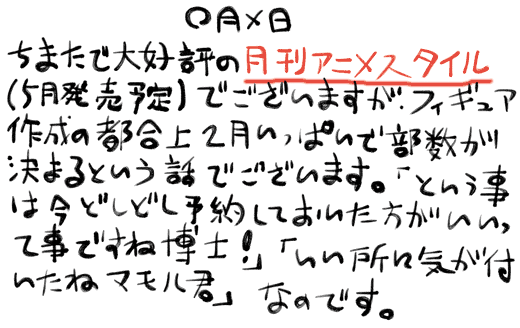 〇月×日
ちまたで大好評の月刊アニメスタイル
(5月発売予定)でございますが、フィギュア
作成の都合上2月いっぱいで部数が
決まるという話でございます。「という事
は今どしどし予約しておいた方がいいっ
て事ですね博士!」「いい所に気が付
いたねマモル君」なのです。